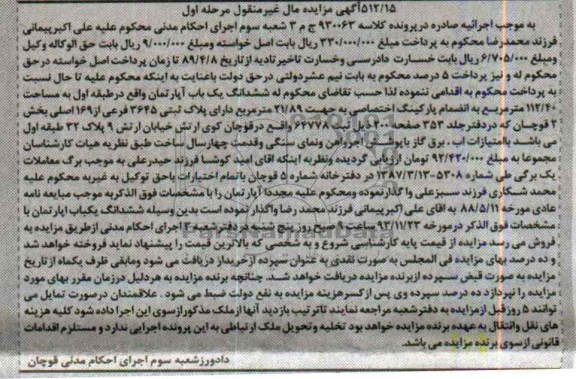 ۵۱۲/۱۵آگهی مزایده مال غیرمنقول مرحله اول
به موجب اجرائیه صادره درپرونده کلاسه ۹۳۰۰۶۳ ج م ۳ شعبه سوم اجرای احکام مدنی محکوم علیه علی اکبرپیمانی
فرزند محمدرضا محکوم به پرداخت مبلغ ۳۳۰/۰۰۰/۰۰۰ ریال بابت اصل خواسته ومبلغ ۹/۰۰۰/۰۰۰ ریال بابت حق الوکاله وکیل
ومبلغ ۶/۷۰۵/۰۰۰ ریال بابت خسارت دادرسی وخسارت تاخیر تادیه از تاریخ ۸۹/۴/۸ تا زمان پرداخت اصل خواسته درحق
محکوم له و نیز پرداخت ۵ درصد محکوم به بابت نیم عشردولتی درحق دولت باعنایت به اینکه محکوم علیه تا حال نسبت
به پرداخت محکوم به اقدامی ننموده لذا حسب تقاضای محکوم له ششدانگ یک باب آپارتمان واقع درطبقه اول به مساحت
۱۱۲/۴۰ مترمربع به انضمام پارکینگ اختصاصی به جهت ۲۱/۸۹ مترمربع دارای پلاک ثبتی ۳۶۴۵ فرعی از۱۶۹ اصلی بخش
۲ قوچان که دردفترجلد ۳۵۳ صفحه ذیل ثبت ۶۴۷۷۸ واقع درقوچان کوی ارتش خیابان ارتش ۹ پلاک ۳۲ طبقه اول
می باشد باامتیازات اب . برق گاز باپوشش آجرواهن ونمای سنگی وقدمت چهارسال ساخت طبق نظریه هیات کارشناسان
مجموعا به مبلغ ۹۲/۴۲۰/۰۰۰ تومان ارزیابی گردیده ونظربه اینکه آقای امید کوشا فرزند حیدرعلی به موجب برگ معاملات
یک برگی طی شماره ۵۳۰۸-۱۳۸۷/۳/۱۳ در دفترخانه شماره ۵ قوچان باتمام اختیارات باحق توکیل به غیربه محکوم علیه
محمد شکاری فرزند سبزعلی وا گذارنموده ومحکوم علیه مجددا آپارتمان را با مشخصات فوق الذکربه موجب مبایعه نامه
عادی مورخه ۸۸/۵/۱۱ به اقای علی اکبرپیمانی فرزند محمد رضا واگذار نموده است بدین وسیله ششدانگ یکباب اپارتمان با
مشخصات فوق الذکر درمورخه ۹۳/۱۱/۲۳ ساعت صبح روز پنج شنبه دردفترشعبه ۳ اجرای احکام مدنی ازطریق مزایده به
فروش می رسد مزایده از قیمت پایه کارشناسی شروع و به شخصی که بالاترین قیمت را پیشنهاد نماید فروخته خواهد شد
و ده درصد بهای مزایده فی المجلس به صورت نقدی به عنوان سپرده ازخریدار دریافت می شود ومابقی ظرف یکماه ازتاریخ
مزایده به صورت قبض سپرده ازبرنده مزایده دریافت خواهد شد. چنانچه برنده مزایده به هردلیل درزمان مقرر بهای مورد
مزایده را نپردازد ده درصد سپرده وی پس ازکسرهزینه مزایده به نفع دولت ضبط می شود . علاقمندان درصورت تمایل می
توانند ۵ روزقبل ازمزایده به دفترشعبه مراجعه نمایند تاترتیب بازدید آنها ازملک مذکورازسوی این اجرا داده شود کلیه هزینه
های نقل وانتقال به عهده برنده مزایده خواهد بود تخلیه و تحویل ملک ارتباطی به این پرونده اجرایی ندارد و مستلزم اقدامات
قانونی ازسوی برنده مزایده می باشد.
دادورزشعبه سوم اجرای احکام مدنی قوچان